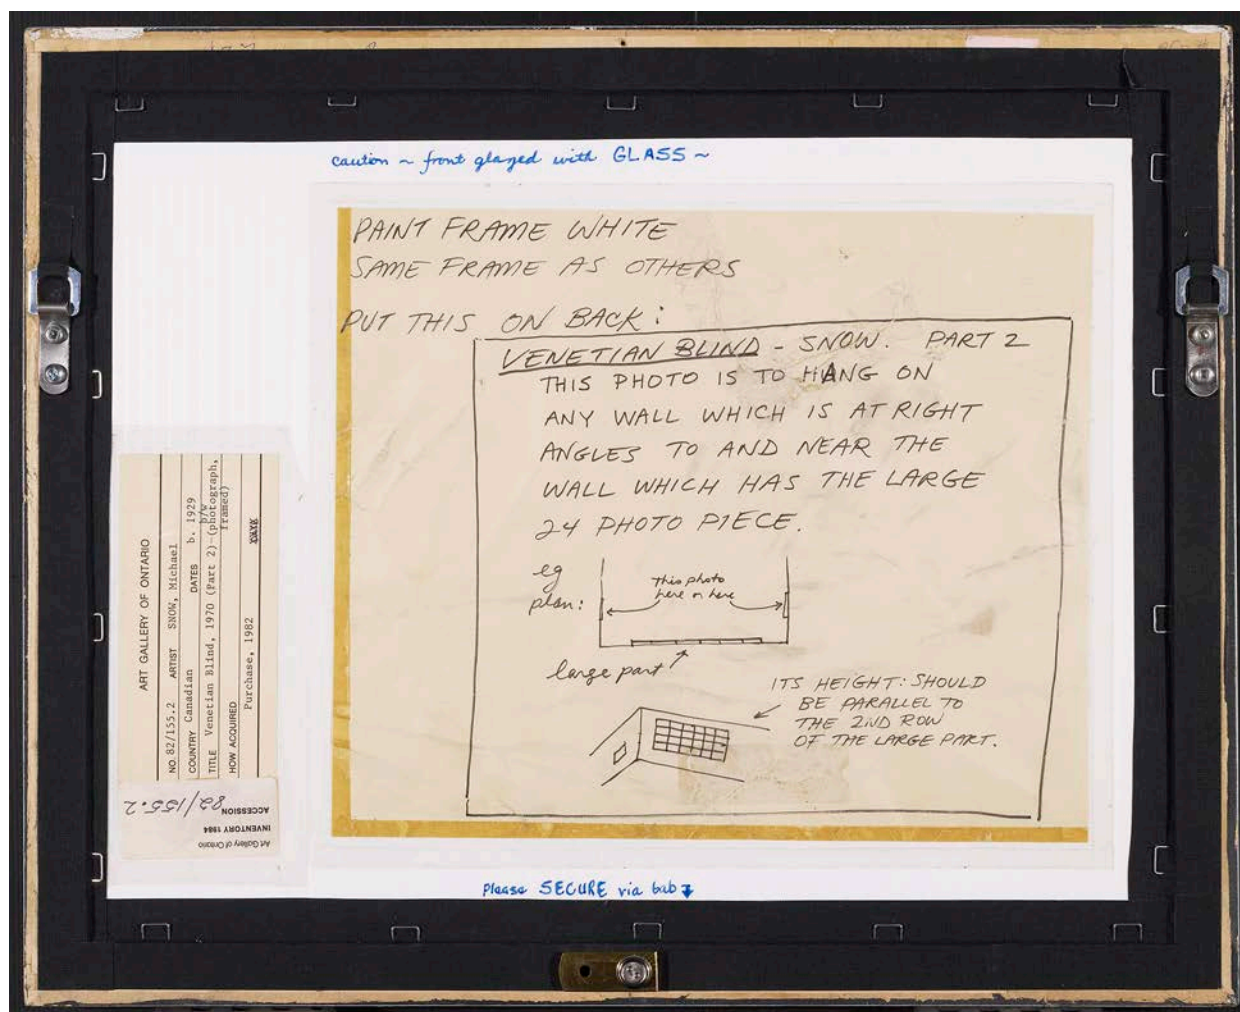 caution ~ front glazed with GLASS ~
PAINT FRAME WHITE
SAME FRAME AS OTHERS
PUT THIS ON BACK:
VENETIAN BLIND - SNOW. PART 2
THIS PHOTO IS TO HANG ON
ANY WALL WHICH IS AT RIGHT
ANGLES TO AND NEAR THE
WALL WHICH HAS THE LARGE
24 PHOTO PIECE.
eg
plan:
This photo
here or here
large part
ITS HEIGHT: SHOULD
BE PARALLEL TO
THE 2ND ROW
OF THE LARGE PART.
Please SECURE via bab
ART GALLERY OF ONTARIO
NO. 82/155.2 ARTIST SNOW, Michael
COUNTRY Canadian DATES b. 1929
b/w
TITLE Venetian Blind, 1970 (Part 2)-(photograph,
framed)
HOW ACQUIRED
Purchase, 1982
Art Gallery of Ontario
INVENTORY 1984
ACCESSION 82/155.2